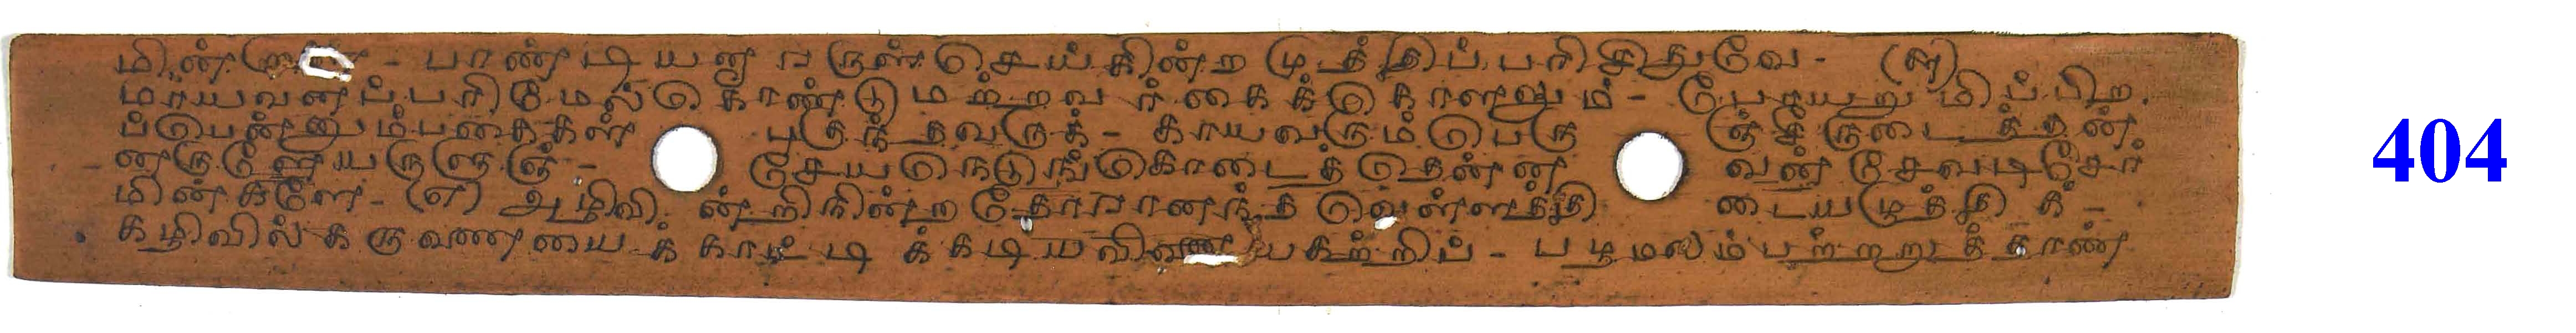 மின்  - பாண்டியனாருள் செய்கின்ற முத்திப்பரிசிதுவே - (௬)
மாயவனப்பரிமேல்கொண்டு மற்றவர்கைக்கொளலும் - போயறுமிப்பிற
ப்பென்னும்பகைகள் புகுந்தவருக் - காயவரும்பெரு ஞ்சீருடைத்தன்
னருளேயருளுஞ் - சேயநெடுங்கொடைத்தென்ன வன் சேவடிசேர்
மின்களே - (௭) அழிவி ன்றிநின்றதோரானந்த வெள்ளத்தி டையழுத்தி க் -
கழிவில்கருவணையைக்காட்டி க்கடியவினையகற்றிப் - பழமலம்பற்றறுத்தாண்
404